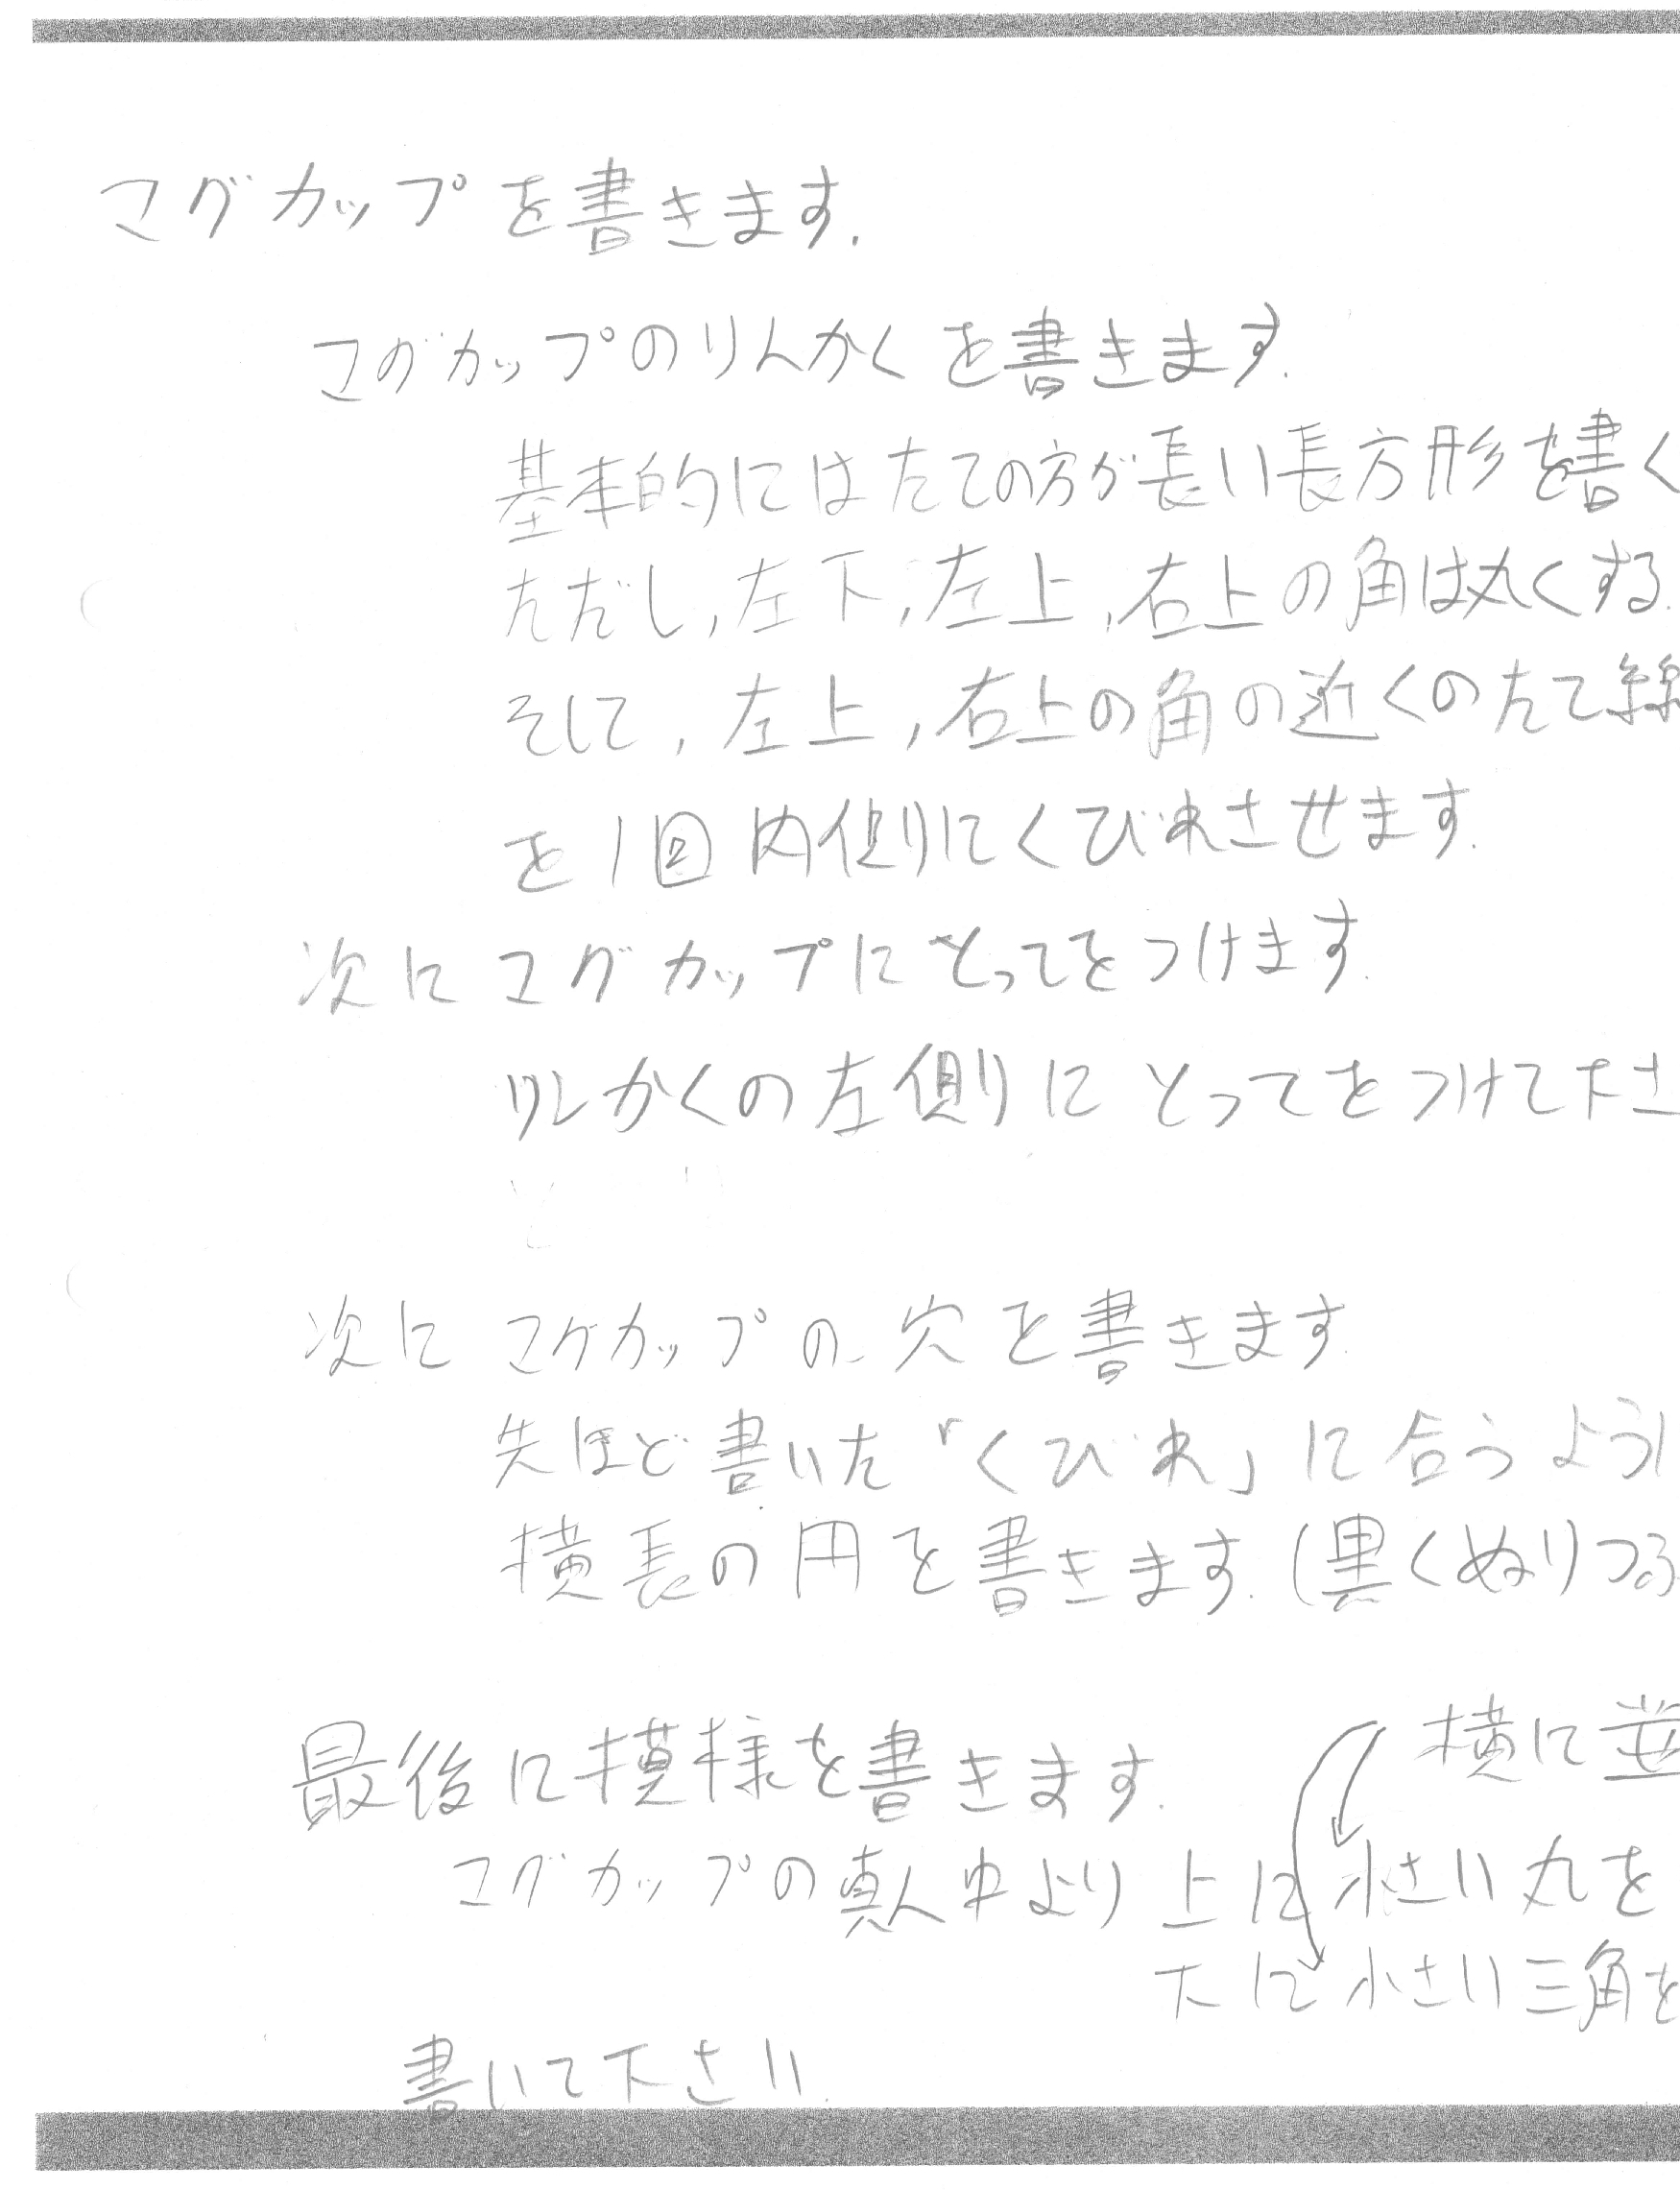 マグカップを書きます.
マグカップのりんかくを書きます.
基本的にはたての方が長い長方形を書く
ただし,左下,左上,右上の角は丸くする.
そして,左上,右上の角の近くのたて線
を1回内側にくびれさせます.
次にマグカップにとってをつけます.
りんかくの左側にとってをつけて下さ
次にマグカップの穴を書きます
先ほど書いた「くびれ」に合うように
横長の円を書きます.(黒くぬりつぶ
最後に模様を書きます.
横に並
マグカップの真ん中より上に小さい丸を
下に小さい三角を
書いて下さい.